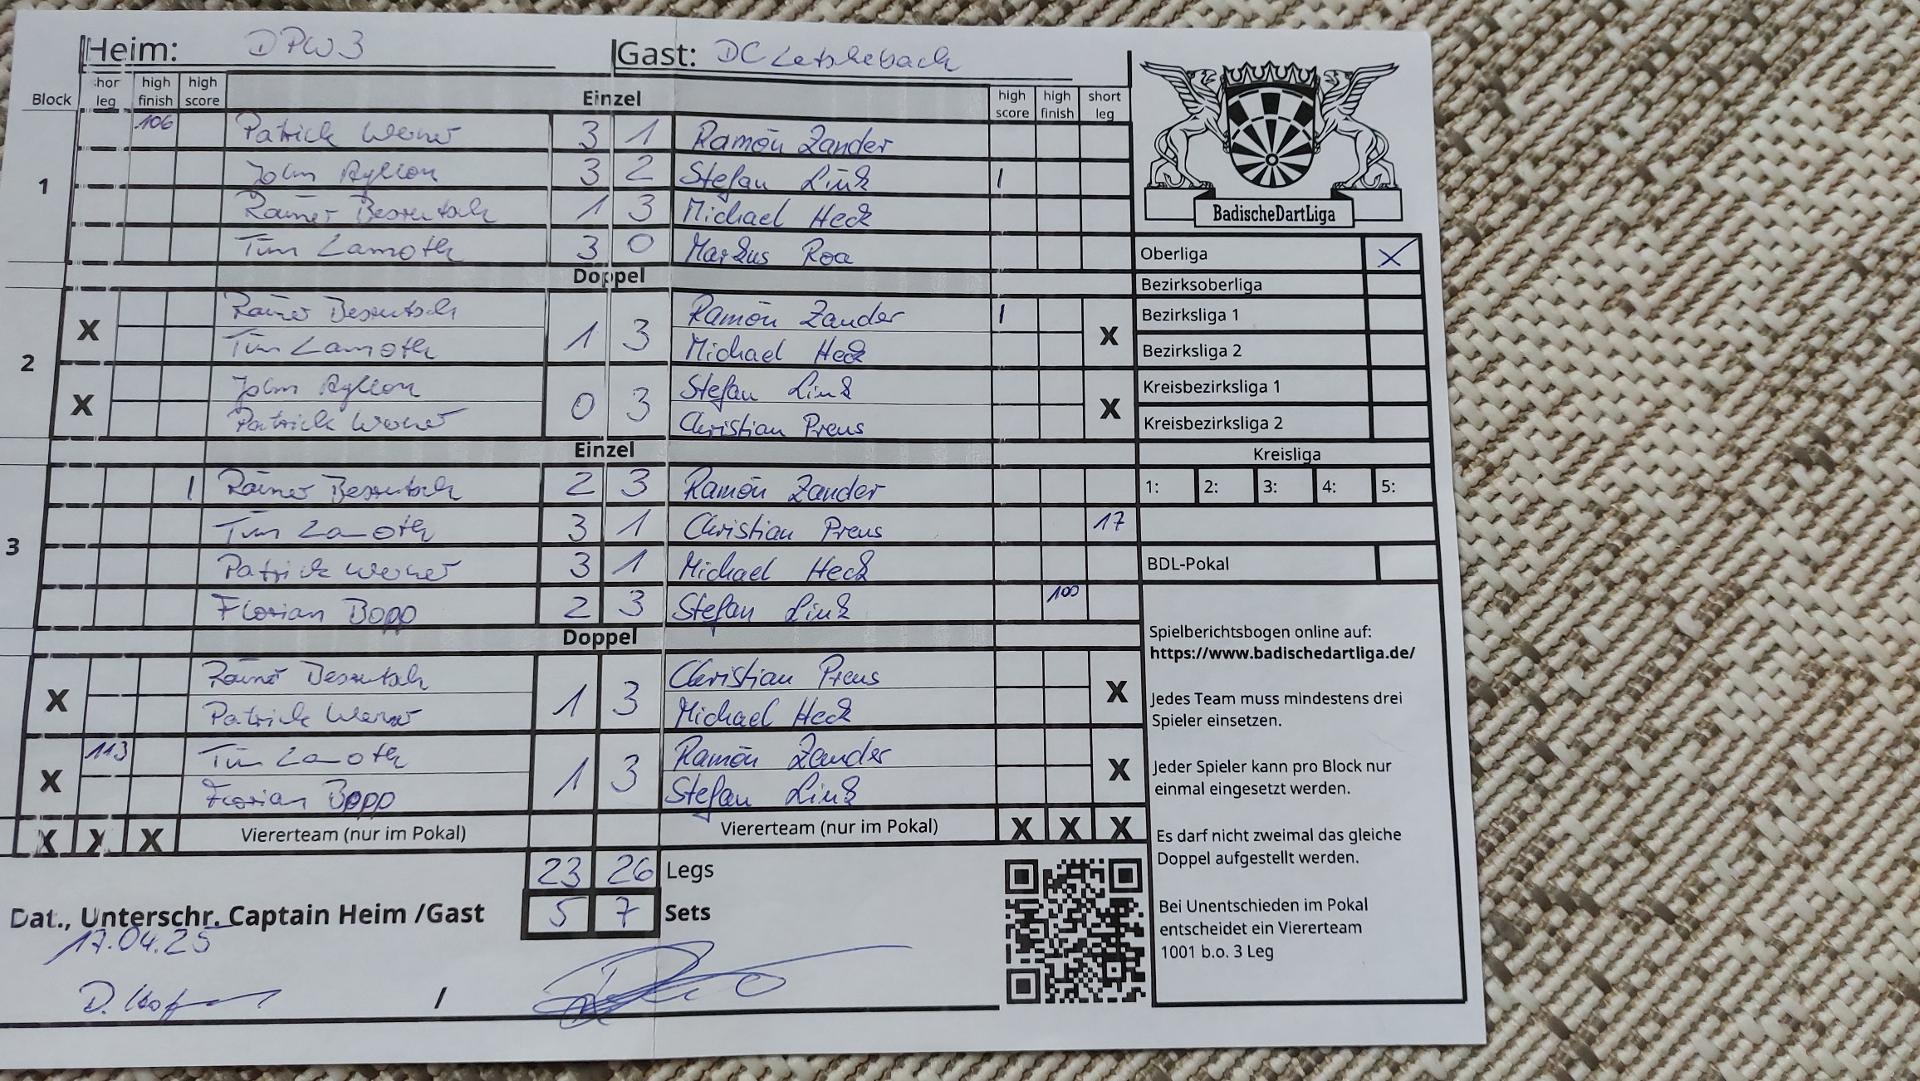 Heim: DPW3 Gast: DC Letshebach
Block short leg high finish high score Einzel high score high finish short leg
1
106 Patrick Werner 3 1 Ramón Zander
John Ayllon 3 2 Stefan Link I
Rainer 1 3 Michael Heck
Tim Lamoth 3 0 Markus Roa
Doppel
2
X Rainer 1 3 Ramón Zander I X
Tim Lamoth Michael Heck
X John Ayllon 0 3 Stefan Link X
Patrick Werner Christian Preus
Einzel
3
I Rainer 2 3 Ramón Zander
Tim Lamoth 3 1 Christian Preus 17
Patrick Werner 3 1 Michael Heck
Florian Bopp 2 3 Stefan Link 100
Doppel
X Rainer 1 3 Christian Preus X
Patrick Werner Michael Heck
X 113 Tim Lamoth 1 3 Ramón Zander X
Florian Bopp Stefan Link
X X X Viererteam (nur im Pokal) Viererteam (nur im Pokal) X X X
23 26 Legs
Dat., Unterschr. Captain Heim /Gast 5 7 Sets
17.04.25
/
BadischeDartLiga
Oberliga X
Bezirksoberliga
Bezirksliga 1
Bezirksliga 2
Kreisbezirksliga 1
Kreisbezirksliga 2
Kreisliga
1: 2: 3: 4: 5:
BDL-Pokal
Spielberichtsbogen online auf:
https://www.badischedartliga.de/
Jedes Team muss mindestens drei
Spieler einsetzen.
Jeder Spieler kann pro Block nur
einmal eingesetzt werden.
Es darf nicht zweimal das gleiche
Doppel aufgestellt werden.
Bei Unentschieden im Pokal
entscheidet ein Viererteam
1001 b.o. 3 Leg